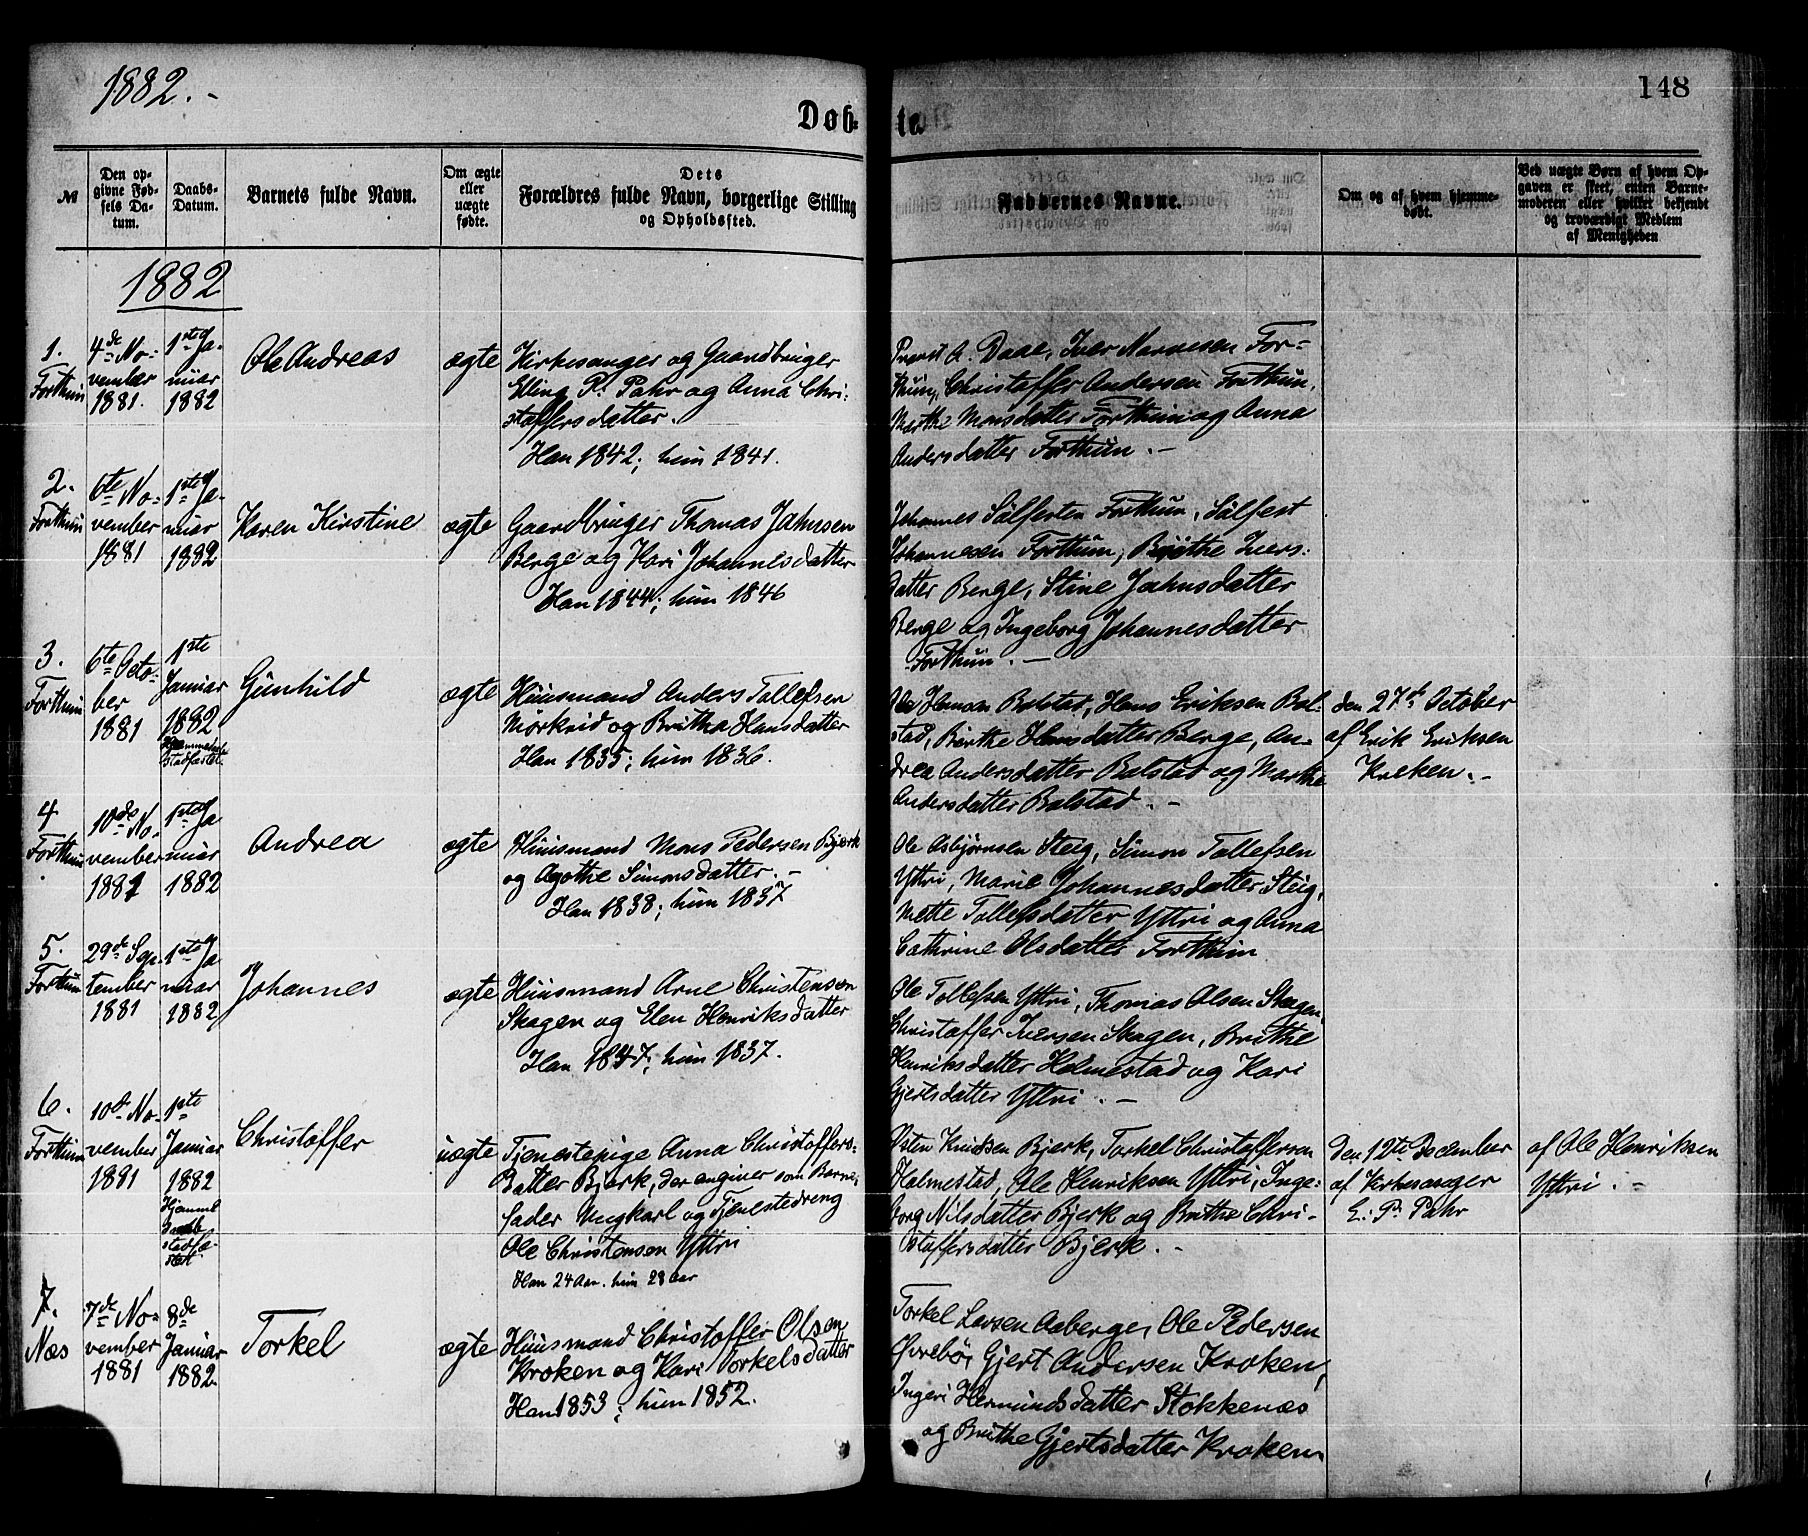 1882.-
148
Døb-
te
№
Den op-
givne Fød-
sels Da-
tum.
Daabs-
Datum.
Barnets fulde Navn.
Om ægte
eller
uægte
fødte.
Dets
Forældres fulde Navn, borgerlige Stilling
og Opholdssted.
Faddernes Navne.
Om og af hvem hjemme-
døbt.
Ved uægte Børn af hvem Op-
gaven er skeet, enten Barne-
moderen eller hvilket bekjendt
og troværdigt Medlem
af Menigheden
1882
1.
Forthun
4de No-
vember
1881.
1ste Ja-
nuar
1882
Ole Andreas
ægte
Kirkesanger og Gaardbruger
Elling P. Pahr og Anna Chri-
stoffersdatter.
Han 1842; hun 1841.
Provst A. Daae, Iver Narvesen For-
thun, Christoffer Andersen Forthun,
Marthe Monsdatter Forthun og Anna
Andersdatter Forthun. -
2.
Forthun
6te No-
vember
1881
1ste Ja-
nuar
1882
Karen Kirstine
ægte
Gaardbruger Thomas Jahnsen
Berge og Kari Johannesdatter
Han 1844; hun 1846
Johannes Sölfesten Forthun, Sölfest
Johannesen Forthun, Birthe Ivers-
datter Berge, Stine Jahnsdatter
Berge og Ingeborg Johannesdatter
Forthun. -
3.
Forthun
6te Octo-
ber
1881
1ste
Januar
1882
Gunhild
ægte
Huusmand Anders Tollefsen
Mörkrid og Britha Hansdatter
Han 1835; hun 1836.
Hans Eriksen Bal-
stad, Birthe Hansdatter Berge, An-
drea Andersdatter Balstad og Marthe
Andersdatter Balstad. -
den 27de October
af Erik Eriksen
Kroken. -
4
Forthun
10de No-
vember
1881
1ste Ja
nuar
1882
Andrea
ægte
Huusmand Mons Pedersen Bjerk
og Agothe Simonsdatter. -
Han 1838; hun 1837
Ole Asbjörnsen Steig, Simon Tollefsen
Yttri, Marie Johannesdatter Steig,
Mette Tollefsdatter Yttri og Anna
Cathrine Olsdatter Forthun
5.
Forthun
29de Sep-
tember
1881
1ste Ja
nuar
1882
Johannes
ægte
Huusmand Arne Christensen
Skagen og Elen Henriksdatter
Han 1847; hun 1837.
Ole Tollefsen Yttri, Thomas Olsen Skagen,
Christoffer Iversen Skagen, Brithe
Henriksdatter Holmestad og Kari
Gjertsdatter Yttri. -
6.
Forthun
10de No-
vember
1881
1ste
Januar
1882
Hjemme
stadfæ-
stet
Christoffer
uægte
Tjenestepige Anna Christoffers-
datter Bjerk, der angiver som Barne-
fader Ungkarl og Tjenestedreng
Ole Christensen Yttri
Han 24 Aar. hun 28 aar
Østen Knudsen Bjerk, Torkel Christoffersen
Holmestad, Ole Henriksen Yttri, Inge-
borg Nilsdatter Bjerk og Brithe Chri-
stoffersdatter Bjerk. -
Den 12te December
af Kirkesanger
E. P. Pahr
af Ole Henriksen
Yttri. -
7.
Næs
7de No-
vember
1881
8de
Januar
1882
Torkel
ægte
Huusmand Christoffer Olsen
Kroken og Kari Torkelsdatter
Han 1853; hun 1852.
Torkel Larsen Aaberge, Ole Pedersen
Øvrebö, Gjert Andersen Kroken,
Ingeri Hermundsdatter Stokkenæs
og Brithe Gjertsdatter Kroken.